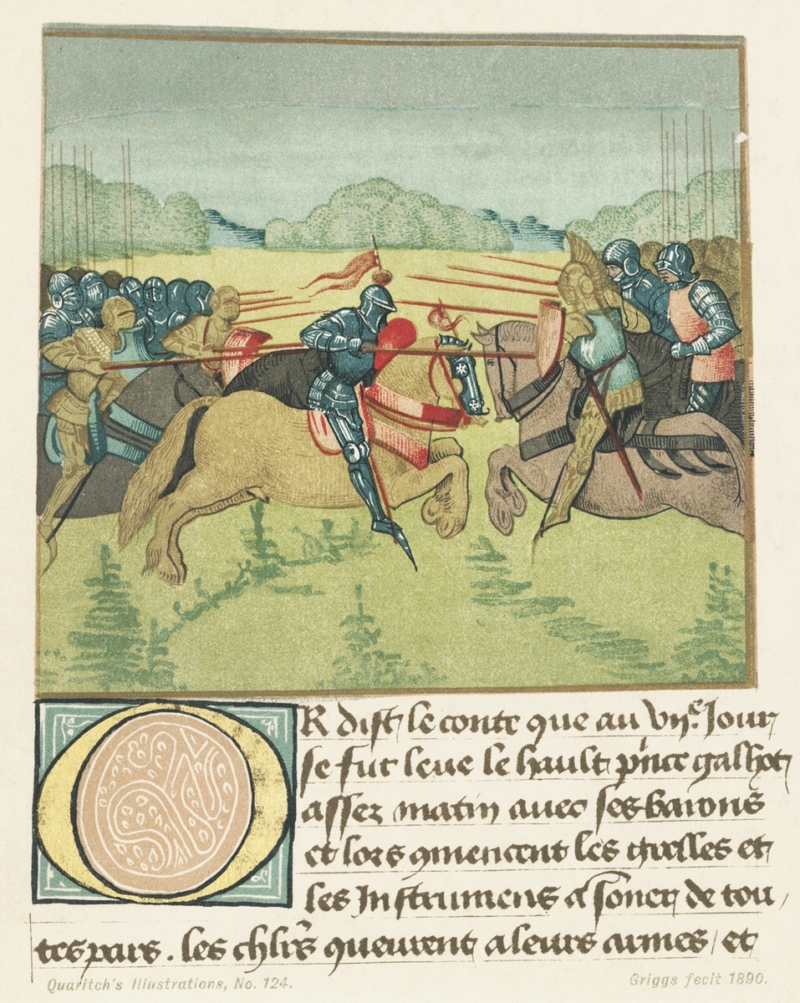 OR dist le conte que au vije. Jour
se fut leue le hault p'nce galhot
assez matin auec ses barons
et lors 9mencent les grelles et
les Instrumens a soner de tou /
tes pars . les chlrs queurent a leurs armes / et
Quaritch's Illustrations, No. 124.
Griggs fecit 1890.